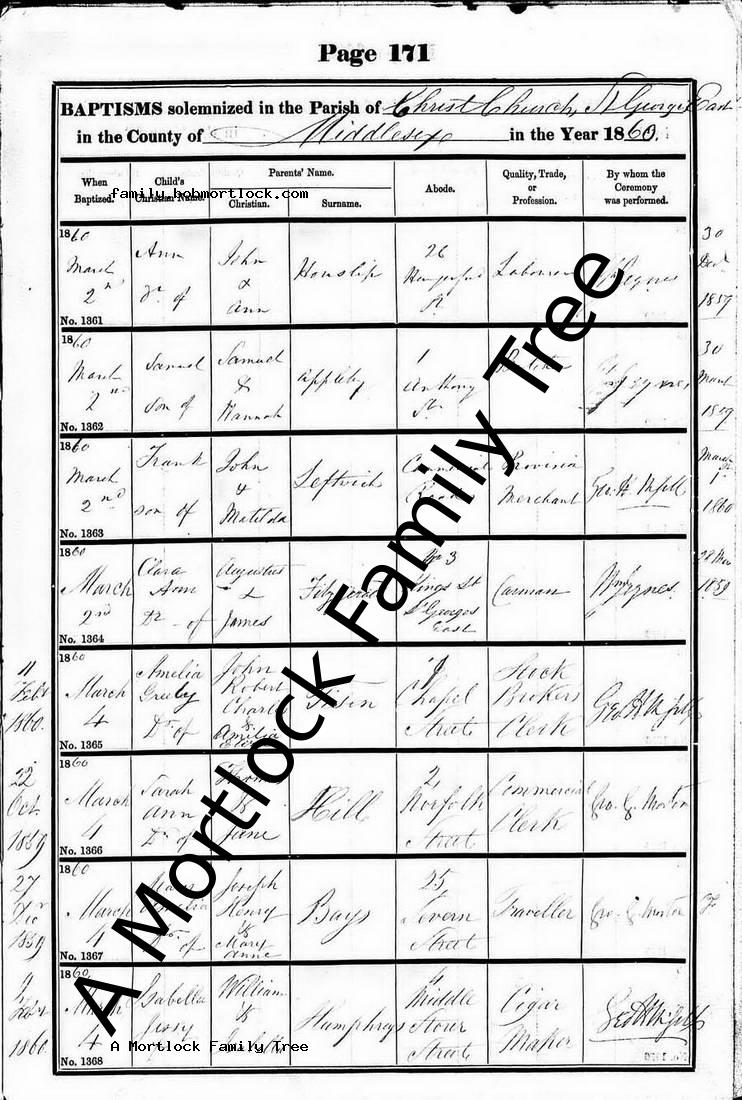 Page 171
BAPTISMS solemnized in the Parish of Christ Church, St George East
in the County of Middlesex in the Year 1860.
When Baptized.
Child's Christian Name.
Parents' Name.
Christian.
Surname.
Abode.
Quality, Trade, or Profession.
By whom the Ceremony was performed.
family.bobmortlock.com
1860 March 2nd
No. 1361
Ann Dr of
John & Ann
Houslip
26 St
Labourer
30 Decr 1859
1860 March 2nd
No. 1362
Samuel son of
Samuel & Hannah
Appleby
1 Anthony St
30 1859
1860 March 2nd
No. 1363
Frank son of
John & Matilda
Leftwich
Commercial Road
Provision Merchant
March 1 1860
1860 March 2nd
No. 1364
Clara Ann Dr of
Augustus & James
Fitzgerald
No 3 Kings St St Georges East
Carman
28 1859
11 Feby 1860.
1860 March 4
No. 1365
Amelia Dr of
John Robert Charles & Amelia
Chapel Street
Stock Brokers Clerk
22 Oct 1859
1860 March 4
No. 1366
Sarah Ann Dr of
& Jane
Hill
2 Norfolk Street
Commercial Clerk
Geo. G. Morton
27 Decr 1859
1860 March 4
No. 1367
Dr of
Joseph Henry & Mary Anne
Bays
25 Severn Street
Traveller
Geo. G. Morton
Feby 1860
1860 March 4
No. 1368
Isabella Jessy
William &
Humphreys
4 Middle Street
Cigar Maker
A Mortlock Family Tree
A Mortlock Family Tree